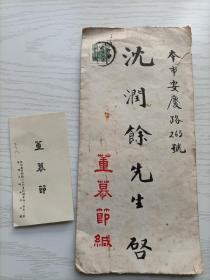 本市安慶路265號
沈潤餘先生啓
董慕節緘
董慕節